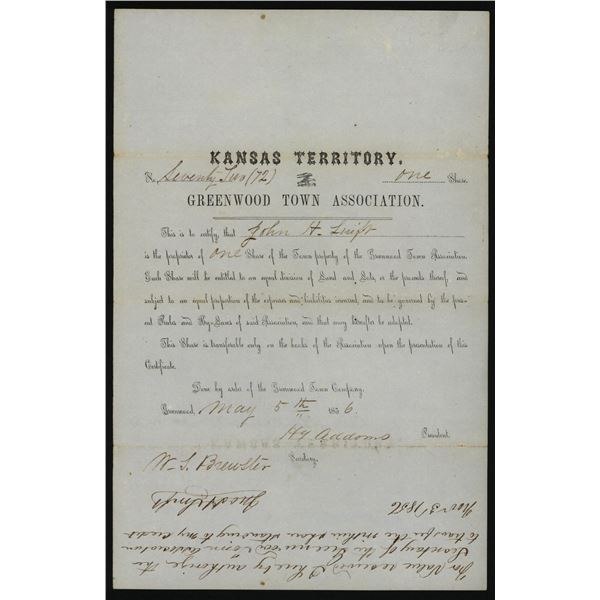 KANSAS TERRITORY,
No Seventy Two (72) one Share.
GREENWOOD TOWN ASSOCIATION.
This is to certify, that John H. Swift
is the proprietor of one Share of the Town property of the Greenwood Town Association.
Such Share will be entitled to an equal division of Land and Lots, or the proceeds thereof, and
subject to an equal proportion of the expenses and liabilities incurred, and to be governed by the pres-
ent Rules and By-Laws of said Association, and that may hereafter be adopted.
This Share is transferable only on the books of the Association upon the presentation of this
Certificate.
Done by order of the Greenwood Town Company,
Greenwood, May 5th 1856.
H J Addoms President.
W. S. Brewster Secretary.
For Value received I hereby authorize the
Secretary of the Greenwood Town Association
to transfer the within share standing to my credit
Nov 3 1856